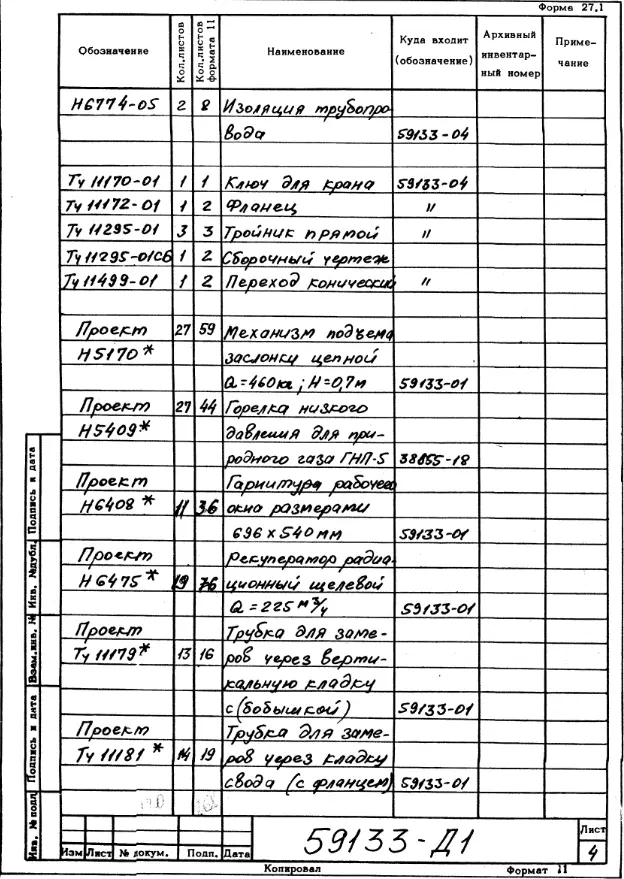 Форма 27.1
Обозначение Кол.листов Кол.листов формата 11 Наименование Куда входит (обозначение) Архивный инвентарный номер Примечание
Н6774-05 2 8 Изоляция трубопро
вода 59133-04
Ту 11170-01 1 1 Ключ для крана 59133-04
Ту 11172-01 1 2 Фланец "
Ту 11295-01 3 3 Тройник прямой "
Ту 11295-01СБ 1 2 Сборочный чертеж
Ту 11499-01 1 2 Переход конический "
Проект 27 59 Механизм подъема
Н5170* заслонки цепной
Q=460кг; Н=0,7м 59133-01
Проект 27 44 Горелка низкого
Н5409* давления для при-
родного газа ГНП-5 38655-18
Проект Гарнитура рабочего
Н6408* 11 36 окна размерами
696 х 540мм 59133-01
Проект Рекуператор радиа-
Н6475* 19 76 ционный щелевой
Q=225 м³/ч 59133-01
Проект Трубка для заме-
Ту 11179* 13 16 ров через верти-
кальную кладку
с (бобышкой) 59133-01
Проект Трубка для заме-
Ту 11181* 14 19 ров через кладку
свода (с фланцем) 59133-01
Инв. № подл. Подпись и дата Взам.инв. № Инв. №дубл. Подпись и дата
59133-Д1
Лист
4
Изм Лист № докум. Подп. Дата
Копировал Формат 11